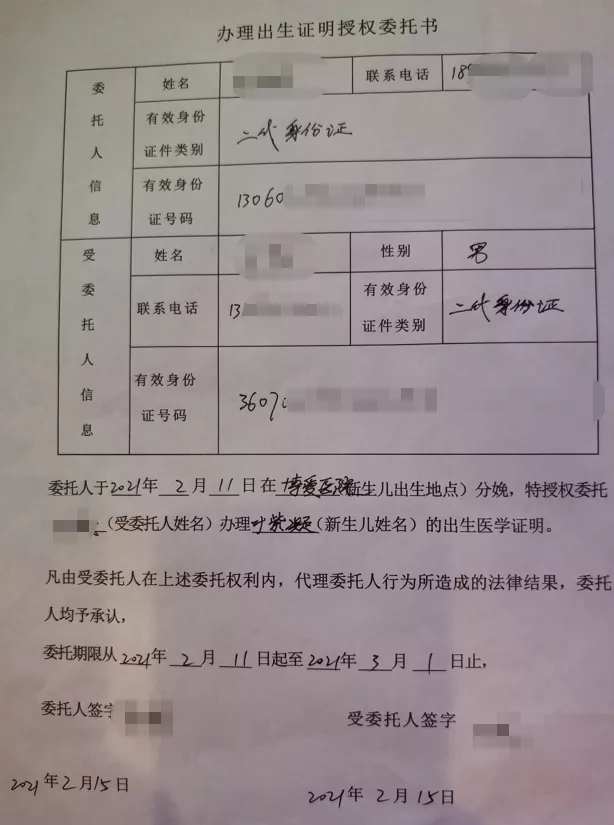 办理出生证明授权委托书
委托人信息
姓名 联系电话 18
有效身份证件类别 二代身份证
有效身份证号码 13060
受委托人信息
姓名 性别 男
联系电话 13 有效身份证件类别 二代身份证
有效身份证号码 36070
委托人于2021年2月11日在博爱医院新生儿出生地点）分娩，特授权委托
（受委托人姓名）办理叶紫凝（新生儿姓名）的出生医学证明。
凡由受委托人在上述委托权利内，代理委托人行为所造成的法律结果，委托
人均予承认，
委托期限从2021年2月11日起至2021年3月1日止，
委托人签字 受委托人签字
2021年2月15日 2021年2月15日